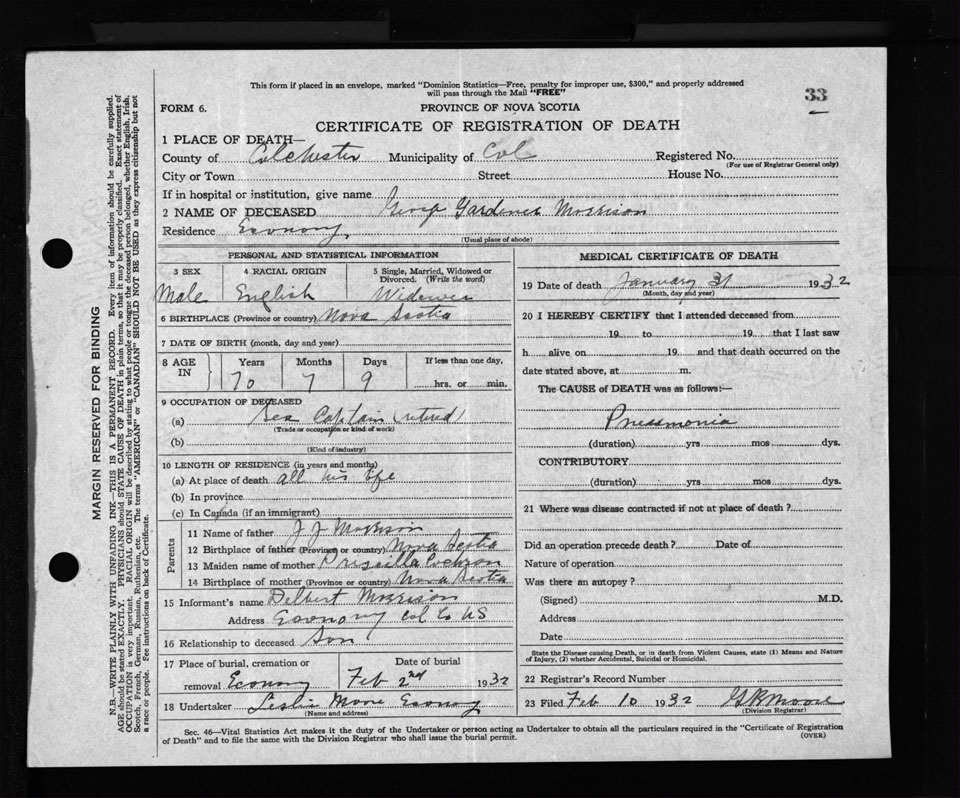 This form if placed in an envelope, marked "Dominion Statistics—Free, penalty for improper use, $300," and properly addressed
will pass through the Mail "FREE"
33
FORM 6.
PROVINCE OF NOVA SCOTIA
CERTIFICATE OF REGISTRATION OF DEATH
1 PLACE OF DEATH—
County of Colchester Municipality of Col Registered No.
(For use of Registrar General only)
City or Town Street House No.
If in hospital or institution, give name
2 NAME OF DECEASED George Gardener Morrison
Residence Economy
(Usual place of abode)
PERSONAL AND STATISTICAL INFORMATION
3 SEX 4 RACIAL ORIGIN 5 Single, Married, Widowed or Divorced. (Write the word)
Male English Widower
6 BIRTHPLACE (Province or country) Nova Scotia
7 DATE OF BIRTH (month, day and year)
8 AGE IN Years Months Days If less than one day,
70 7 9 hrs. or min.
9 OCCUPATION OF DECEASED
(a) Sea Captain (retired)
(Trade or occupation or kind of work)
(b)
(Kind of industry)
10 LENGTH OF RESIDENCE (in years and months)
(a) At place of death all his life
(b) In province
(c) In Canada (if an immigrant)
Parents
11 Name of father J J Morrison
12 Birthplace of father (Province or country) Nova Scotia
13 Maiden name of mother Priscilla
14 Birthplace of mother (Province or country) Nova Scotia
15 Informant's name Delbert Morrison
Address Economy Col Co NS
16 Relationship to deceased Son
17 Place of burial, cremation or removal Economy Date of burial Feb 2nd 1932
18 Undertaker Leslie Moore Economy
(Name and address)
MEDICAL CERTIFICATE OF DEATH
19 Date of death January 31 1932
(Month, day and year)
20 I HEREBY CERTIFY that I attended deceased from
19 to 19 that I last saw
h alive on 19 and that death occurred on the
date stated above, at m.
The CAUSE of DEATH was as follows:—
Pneumonia
(duration) yrs mos dys.
CONTRIBUTORY
(duration) yrs mos dys.
21 Where was disease contracted if not at place of death?
Did an operation precede death? Date of
Nature of operation
Was there an autopsy?
(Signed) M.D.
Address
Date
State the Disease causing Death, or in death from Violent Causes, state (1) Means and Nature
of Injury, (2) whether Accidental, Suicidal or Homicidal.
22 Registrar's Record Number
23 Filed Feb 10 1932 G R Moore
(Division Registrar)
Sec. 46—Vital Statistics Act makes it the duty of the Undertaker or person acting as Undertaker to obtain all the particulars required in the "Certificate of Registration
of Death" and to file the same with the Division Registrar who shall issue the burial permit.
(OVER)
MARGIN RESERVED FOR BINDING
N.B.—WRITE PLAINLY WITH UNFADING INK—THIS IS A PERMANENT RECORD. Every item of information should be carefully supplied.
AGE should be stated EXACTLY. PHYSICIANS should STATE CAUSE OF DEATH in plain terms, so that it may be properly classified. Exact statement of
OCCUPATION is very important. RACIAL ORIGIN will be described by stating to what people or tongue the deceased person belonged, whether English, Irish,
Scotch, French, German, Russian, Ruthenian, etc. The terms "AMERICAN" or "CANADIAN" SHOULD NOT BE USED as they express citizenship but not
a race or people. Fee instructions on back of Certificate.